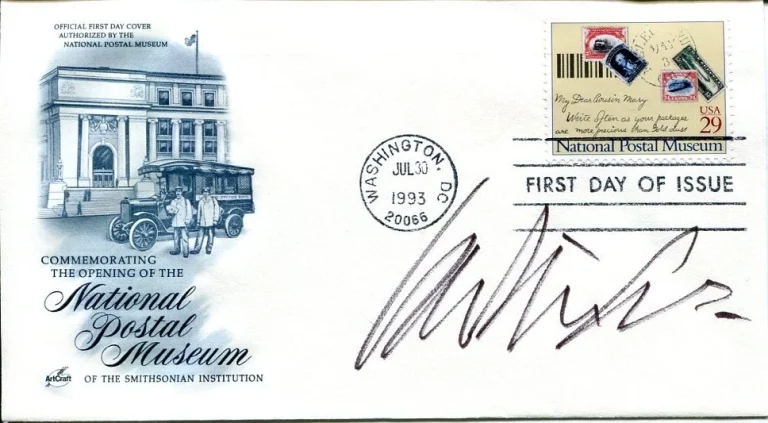 OFFICIAL FIRST DAY COVER
AUTHORIZED BY THE
NATIONAL POSTAL MUSEUM
COMMEMORATING
THE OPENING OF THE
National
Postal
Museum
ArtCraft
OF THE SMITHSONIAN INSTITUTION
WASHINGTON, DC
JUL 30
1993
20066
My Dear Cousin Mary
Write often as your packages
are more precious than Gold dust
USA
29
National Postal Museum
FIRST DAY OF ISSUE